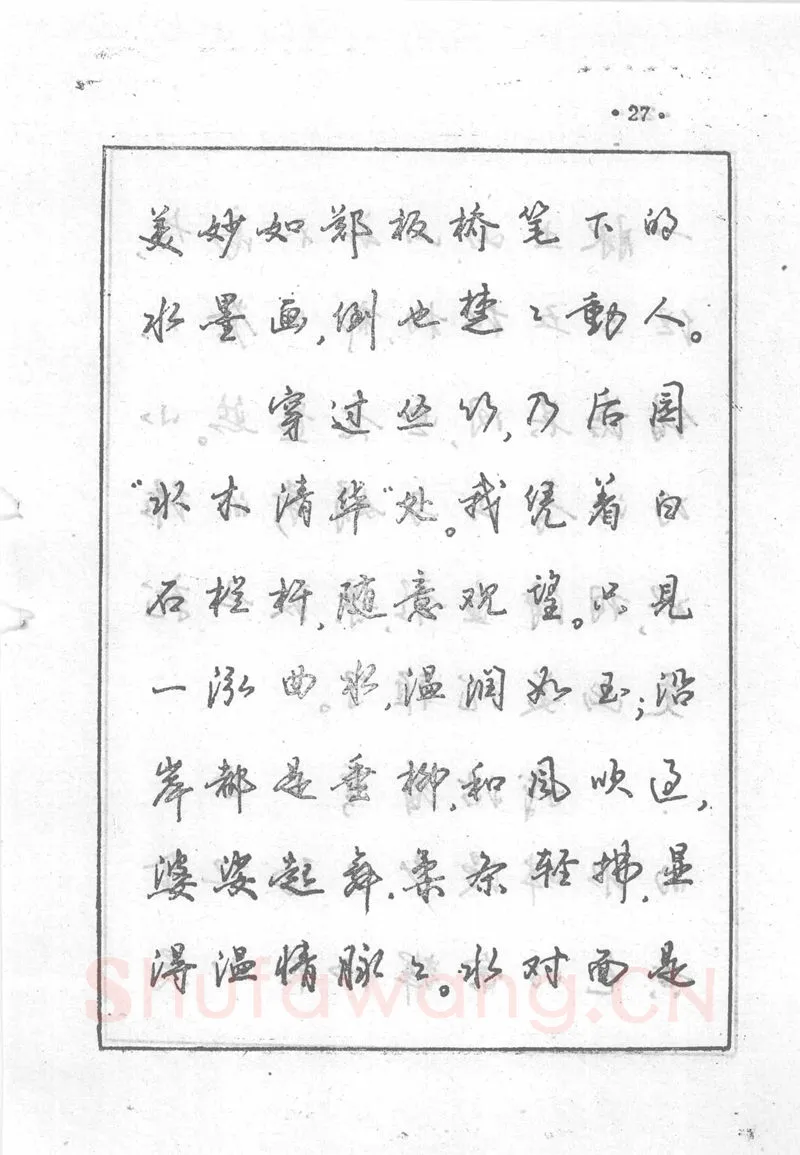 ·27·
美妙如郑板桥笔下的
水墨画,倒也楚々動人。
穿过丛竹,乃后园
“水木清华”处。我凭着白
石栏杆,随意观望。只見
一泓曲水,温润如玉;沿
岸都是垂柳,和风吹过,
婆娑起舞,柔条轻拂,显
得温情脉々。水对面是
Shufawang.CN